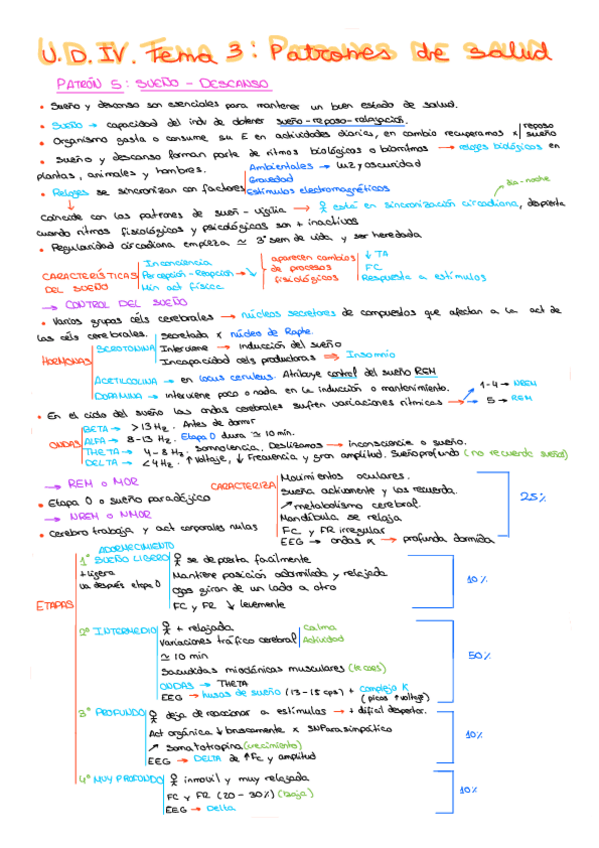 U.D. IV. Tema 3: Patrones de salud
PATRÓN 5: SUEÑO - DESCANSO
• Sueño y descanso son esenciales para mantener un buen estado de salud.
• Sueño → capacidad del indv de obtener sueño-reposo-relajación.
• Organismo gasta o consume su E en actividades diarias, en cambio recuperamos x reposo
sueño
• Sueño y descanso forman parte de ritmos biológicos o biorritmos → relojes biológicos en
plantas, animales y hombres.
Ambientales → luz y oscuridad
Gravedad
• Relojes se sincronizan con factores Estímulos electromagnéticos
día-noche
↓
Coincide con los patrones de sueñ-vigilia → está en sincronización circadiana, despierta
cuando ritmos fisiológicos y psicológicos son + inactivos
• Regularidad circadiana empieza ≃ 3ª sem de vida y ser heredada
CARACTERÍSTICAS
DEL SUEÑO
Inconciencia
Percepción - Reacción → ↓
Min act física
aparecen cambios
de procesos
fisiológicos
↓ TA
FC
Respuesta a estímulos
→ CONTROL DEL SUEÑO
• Varios grupos céls cerebrales → núcleos secretores de compuestos que afectan a la act de
las céls cerebrales.
HORMONAS
SEROTONINA
secretada x núcleo de Raphe.
Interviene → inducción del sueño
Incapacidad cels productoras → Insomnio
ACETILCOLINA → en locus ceruleus. Atribuye control del sueño REM
DOPAMINA → interviene poco o nada en la inducción o mantenimiento.
• En el ciclo del sueño las ondas cerebrales sufren variaciones rítmicas →
1-4 → NREM
5 → REM
ONDAS
BETA → >13 Hz. Antes de dormir
ALFA → 8-13 Hz. Etapa 0 dura ≃ 10 min.
THETA → 4-8 Hz. somnolencia. Deslizamos → inconsciencia o sueño.
DELTA → <4 Hz. ↑ Voltaje, ↓ Frecuencia y gran amplitud. Sueño profundo (no recuerde sueños)
→ REM o MOR
• Etapa 0 o sueño paradójico
→ NREM o NMOR
• Cerebro trabaja y act corporales nulas
CARACTERIZA
Movimientos oculares.
Sueña activamente y los recuerda.
↗ metabolismo cerebral.
Mandíbula se relaja
FC y FR irregular
EEG → ondas α → profunda dormida
25%
ETAPAS
ADORMECIMIENTO
1º SUEÑO LIGERO
+ ligera
va después etapa 0
se despierta facilmente
Mantiene posición adormilada y relajada
Ojos giran de un lado a otro
FC y FR ↓ levemente
10%
2º INTERMEDIO
+ relajada
Variaciones tráfico cerebral
Calma
Actividad
≃ 10 min
Sacudidas mioclónicas musculares (te caes)
ONDAS → THETA
EEG → husos de sueño (13-15 cps) + Complejo K
(picos ↑voltaje)
50%
3º PROFUNDO
deja de reaccionar a estímulos → + difícil despertar.
Act orgánica ↓ bruscamente x SNParasimpático
↗ Somatotropina (crecimiento)
EEG → DELTA de ↑Fc y amplitud
10%
4º MUY PROFUNDO
inmovil y muy relajada
FC y FR (20-30%) (baja)
EEG → Delta
10%